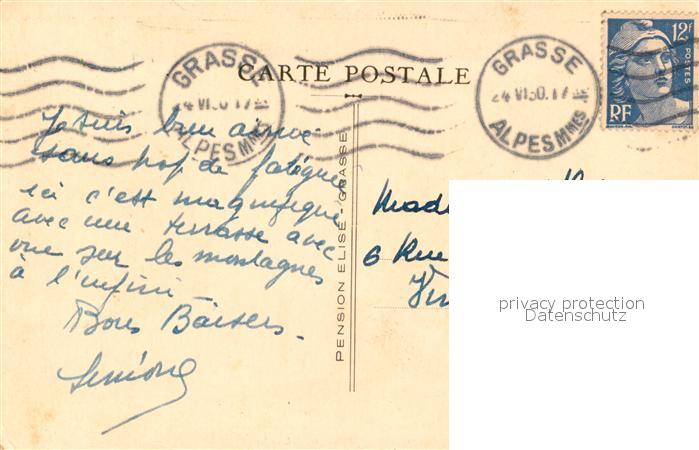 CARTE POSTALE
GRASSE
24 VI 50. 17 H
ALPES MMES
GRASSE
24 VI 50. 17 H
ALPES MMES
12F
POSTES
RF
Je suis bien arrivé
sans trop de fatigue
ici c'est magnifique
avec une terrasse avec
vue sur les montagnes
à l'infini
Bons Baisers.
Simone
PENSION ELISE - GRASSE
6 Rue
privacy protection
Datenschutz